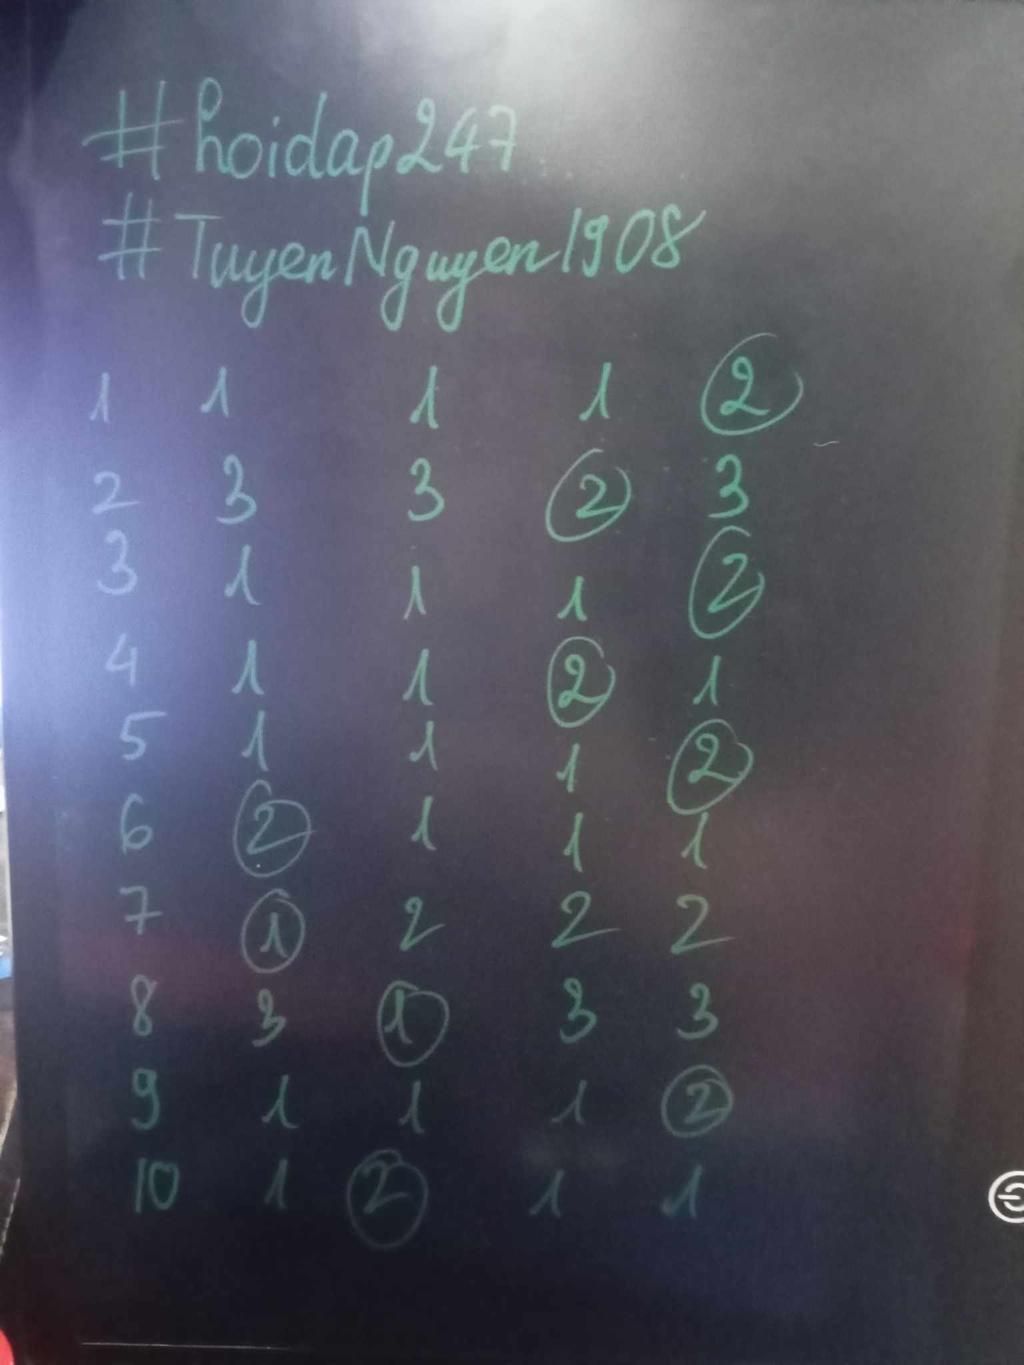 #hoidap247
#TuyenNguyen1908
1 1 1 1 2
2 3 3 2 3
3 1 1 1 2
4 1 1 2 1
5 1 1 1 2
6 2 1 1 1
7 1 2 2 2
8 3 1 3 3
9 1 1 1 2
10 1 2 1 1